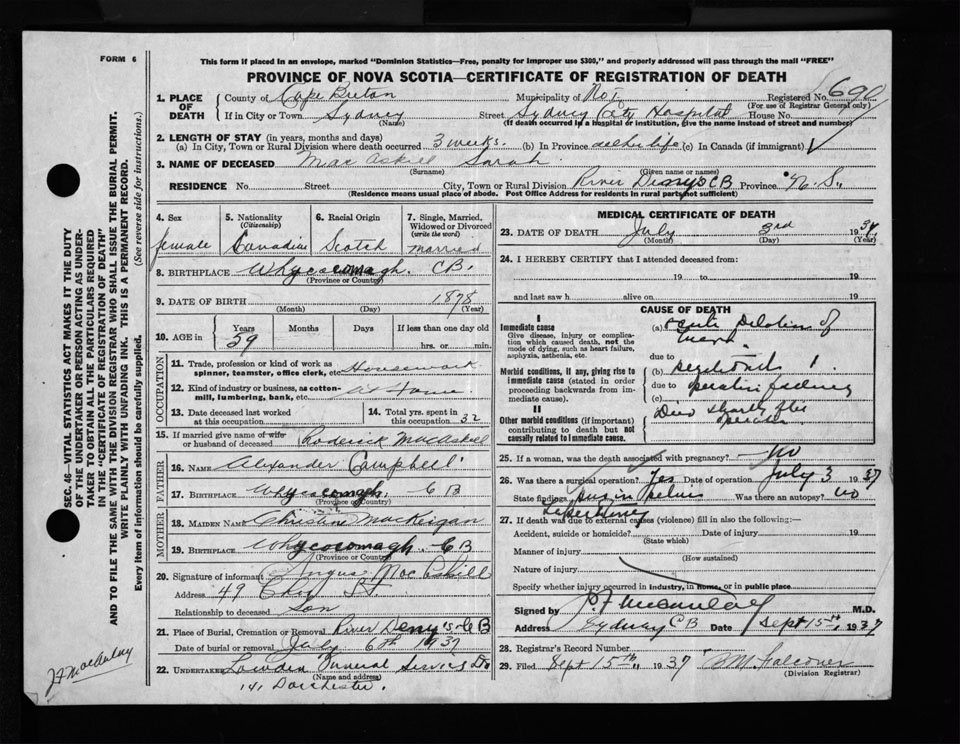 FORM 6
This form if placed in an envelope, marked "Dominion Statistics—Free, penalty for improper use $300," and properly addressed will pass through the mail "FREE"
PROVINCE OF NOVA SCOTIA—CERTIFICATE OF REGISTRATION OF DEATH
1. PLACE OF DEATH County of Cape Breton Municipality of No 1 Registered No. 690
(For use of Registrar General only)
If in City or Town Sydney Street Sydney City Hospital House No.
(Name) (If death occurred in a hospital or institution, give the name instead of street and number)
2. LENGTH OF STAY (in years, months and days)
(a) In City, Town or Rural Division where death occurred 3 weeks. (b) In Province all her life (c) In Canada (if immigrant)
3. NAME OF DECEASED MacAskill Sarah
(Surname) (Given name or names)
RESIDENCE No. Street City, Town or Rural Division River Denys CB Province N.S.
(Residence means usual place of abode. Post Office Address for residents in rural parts not sufficient)
4. Sex 5. Nationality (Citizenship) 6. Racial Origin 7. Single, Married, Widowed or Divorced (write the word)
female Canadian Scotch married
8. BIRTHPLACE Whycocomagh. CB.
(Province or Country)
9. DATE OF BIRTH 1878
(Month) (Day) (Year)
10. AGE in Years Months Days If less than one day old
59 hrs. or min.
OCCUPATION
11. Trade, profession or kind of work as spinner, teamster, office clerk, etc. Housework
12. Kind of industry or business, as cotton-mill, lumbering, bank, etc. at Home
13. Date deceased last worked at this occupation 14. Total yrs. spent in this occupation 32
15. If married give name of wife or husband of deceased Roderick MacAskill
FATHER
16. NAME Alexander Campbell
17. BIRTHPLACE Whycocomagh. C B
(Province or Country)
MOTHER
18. MAIDEN NAME Christine MacKeigan
19. BIRTHPLACE Whycocomagh. C B
(Province or Country)
20. Signature of informant Angus MacAskill
Address 49 St.
Relationship to deceased Son
21. Place of Burial, Cremation or Removal River Denys C B
Date of burial or removal July 6th 1937
22. UNDERTAKER Lowden Funeral Service
(Name and Address)
141 Dorchester.
MEDICAL CERTIFICATE OF DEATH
23. DATE OF DEATH July 3rd 1937
(Month) (Day) (Year)
24. I HEREBY CERTIFY that I attended deceased from:
19 to 19
and last saw h alive on 19
CAUSE OF DEATH
I
Immediate cause
Give disease, injury or complication which caused death, not the mode of dying, such as heart failure, asphyxia, asthenia, etc.
(a) acute Dilation of Heart
due to
Morbid conditions, if any, giving rise to immediate cause (stated in order proceeding backwards from immediate cause).
(b)
due to
(c)
II
Other morbid conditions (if important) contributing to death but not causally related to immediate cause.
Died shortly after operation
25. If a woman, was the death associated with pregnancy? No
26. Was there a surgical operation? Yes Date of operation July 3 1937
State findings Pus in pelvis Was there an autopsy? no
27. If death was due to external causes (violence) fill in also the following:—
Accident, suicide or homicide? Date of injury 19
(State which)
Manner of injury
(How sustained)
Nature of injury
Specify whether injury occurred in industry, in home, or in public place
Signed by M.D.
Address Sydney C B Date Sept 15th 1937
28. Registrar's Record Number
29. Filed Sept 15th 1937 Falconer
(Division Registrar)
SEC. 46—VITAL STATISTICS ACT MAKES IT THE DUTY
OF THE UNDERTAKER OR PERSON ACTING AS UNDER-
TAKER TO OBTAIN ALL THE PARTICULARS REQUIRED
IN THE "CERTIFICATE OF REGISTRATION OF DEATH"
AND TO FILE THE SAME WITH THE DIVISION REGISTRAR WHO SHALL ISSUE THE BURIAL PERMIT.
WRITE PLAINLY WITH UNFADING INK. THIS IS A PERMANENT RECORD.
Every item of information should be carefully supplied. (See reverse side for instructions.)